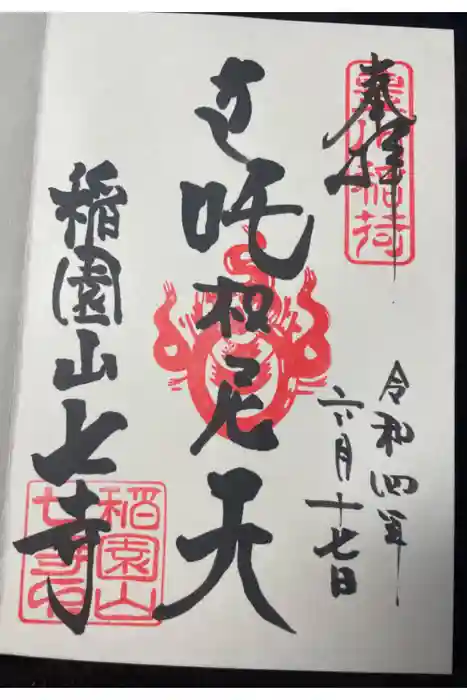 奉拝
稲荷
令和四年
六月十七日
吒枳尼天
稲園山七寺
稲園山
七寺印